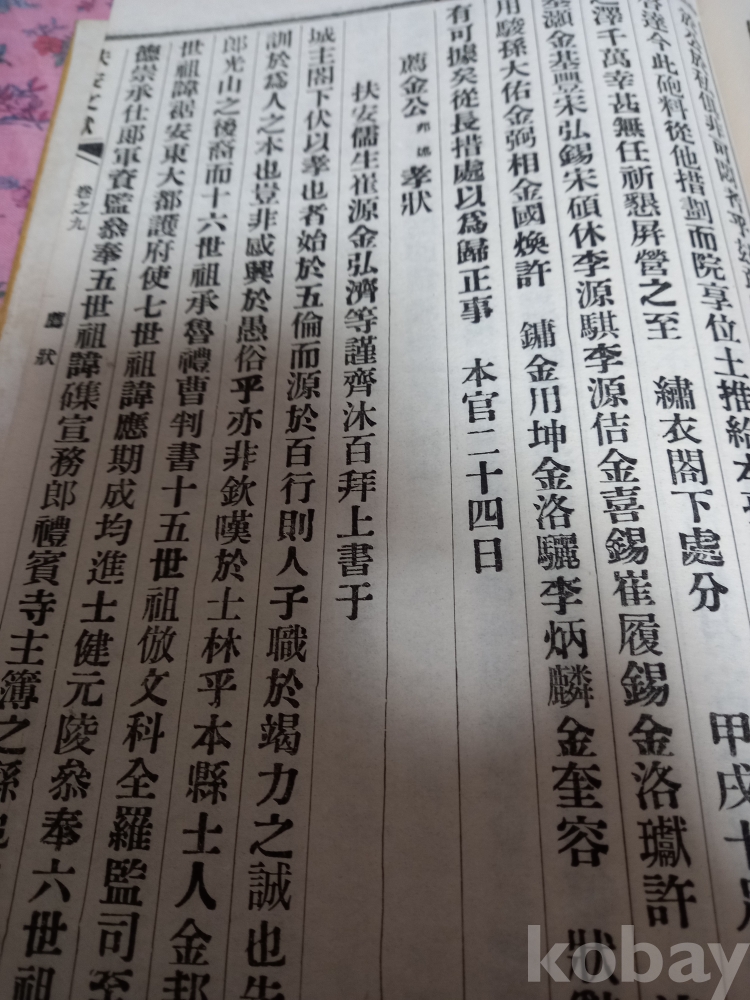 甲戌十
繡衣閣下處分
達今此砲料從他措劃而院享位土推
之澤千萬幸甚無任祈懇屏營之至
灝金基豐宋弘錫宋碩休李源騏李源佶金喜錫崔履錫金洛瓛許
用駿孫大佑金弼相金國煥許 鏞金用坤金洛驪李炳麟金奎容 狀
有可據矣從長措處以爲歸正事 本官二十四日
薦金公 孝狀
扶安儒生崔源金弘濟等謹齊沐百拜上書于
城主閣下伏以孝也者始於五倫而源於百行則人子職於竭力之誠也
訓於爲人之本也豈非感興於愚俗乎亦非欽嘆於士林乎本縣士人金邦
郎光山之後裔而十六世祖承魯禮曹判書十五世祖倣文科全羅監司至
世祖諱琚安東大都護府使七世祖諱應期成均進士健元陵叅奉六世祖
德崇承仕郎軍資監叅奉五世祖諱磼宣務郎禮賓寺主簿之孫
卷之九 薦狀
kobay